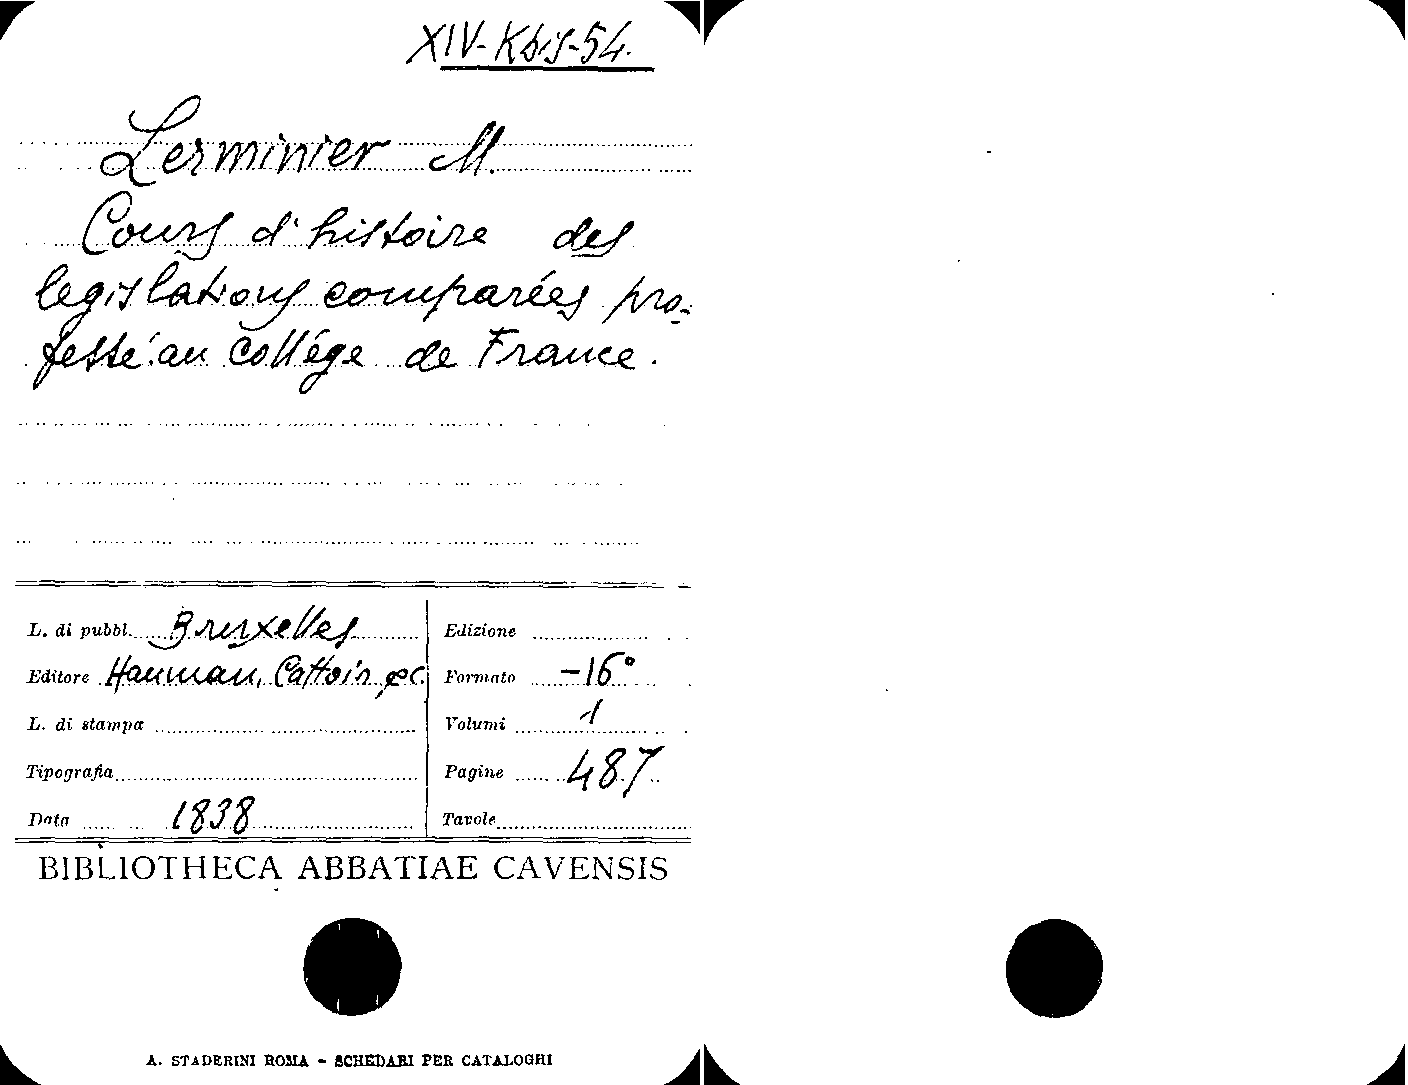 XIV-Kbis-54.
Lerminier M.
Cours d'histoire des
legislations comparées pro-
fessé au collége de France.
L. di pubbl. Bruxelles
Editore Hauman, Cattoir, &C.
L. di stampa
Tipografia
Data 1838
Edizione
Formato -16°
Volumi 1
Pagine 487
Tavole
BIBLIOTHECA ABBATIAE CAVENSIS
A. STADERINI ROMA - SCHEDARI PER CATALOGHI